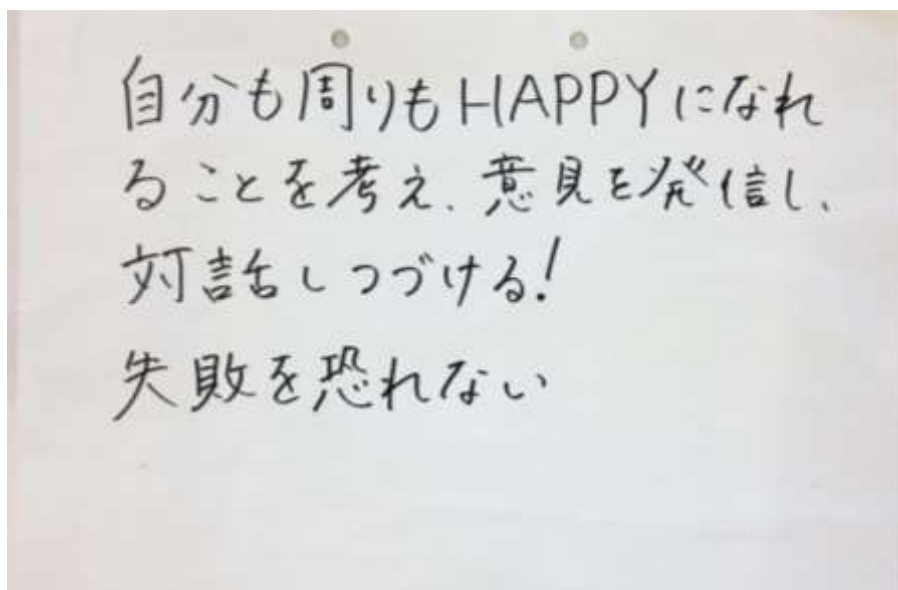 自分も周りもHAPPYになれ
ることを考え、意見を発信し、
対話しつづける!
失敗を恐れない